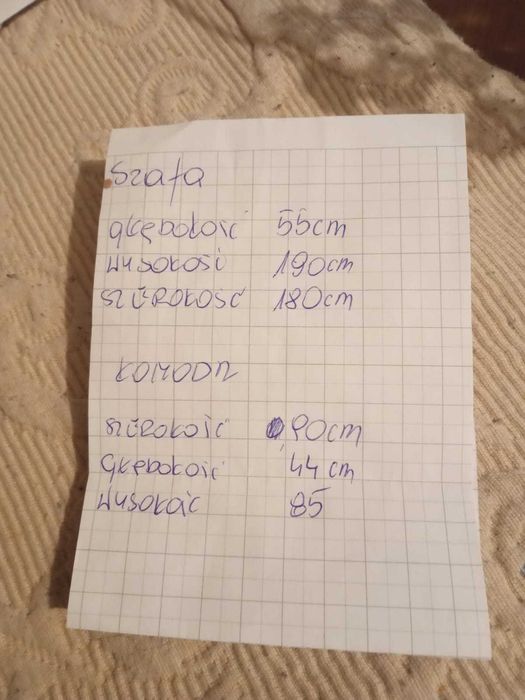 Szafa
głębokość 55cm
wysokość 190cm
szerokość 180cm
KOMODA
szerokość 90cm
głębokość 44 cm
wysokość 85